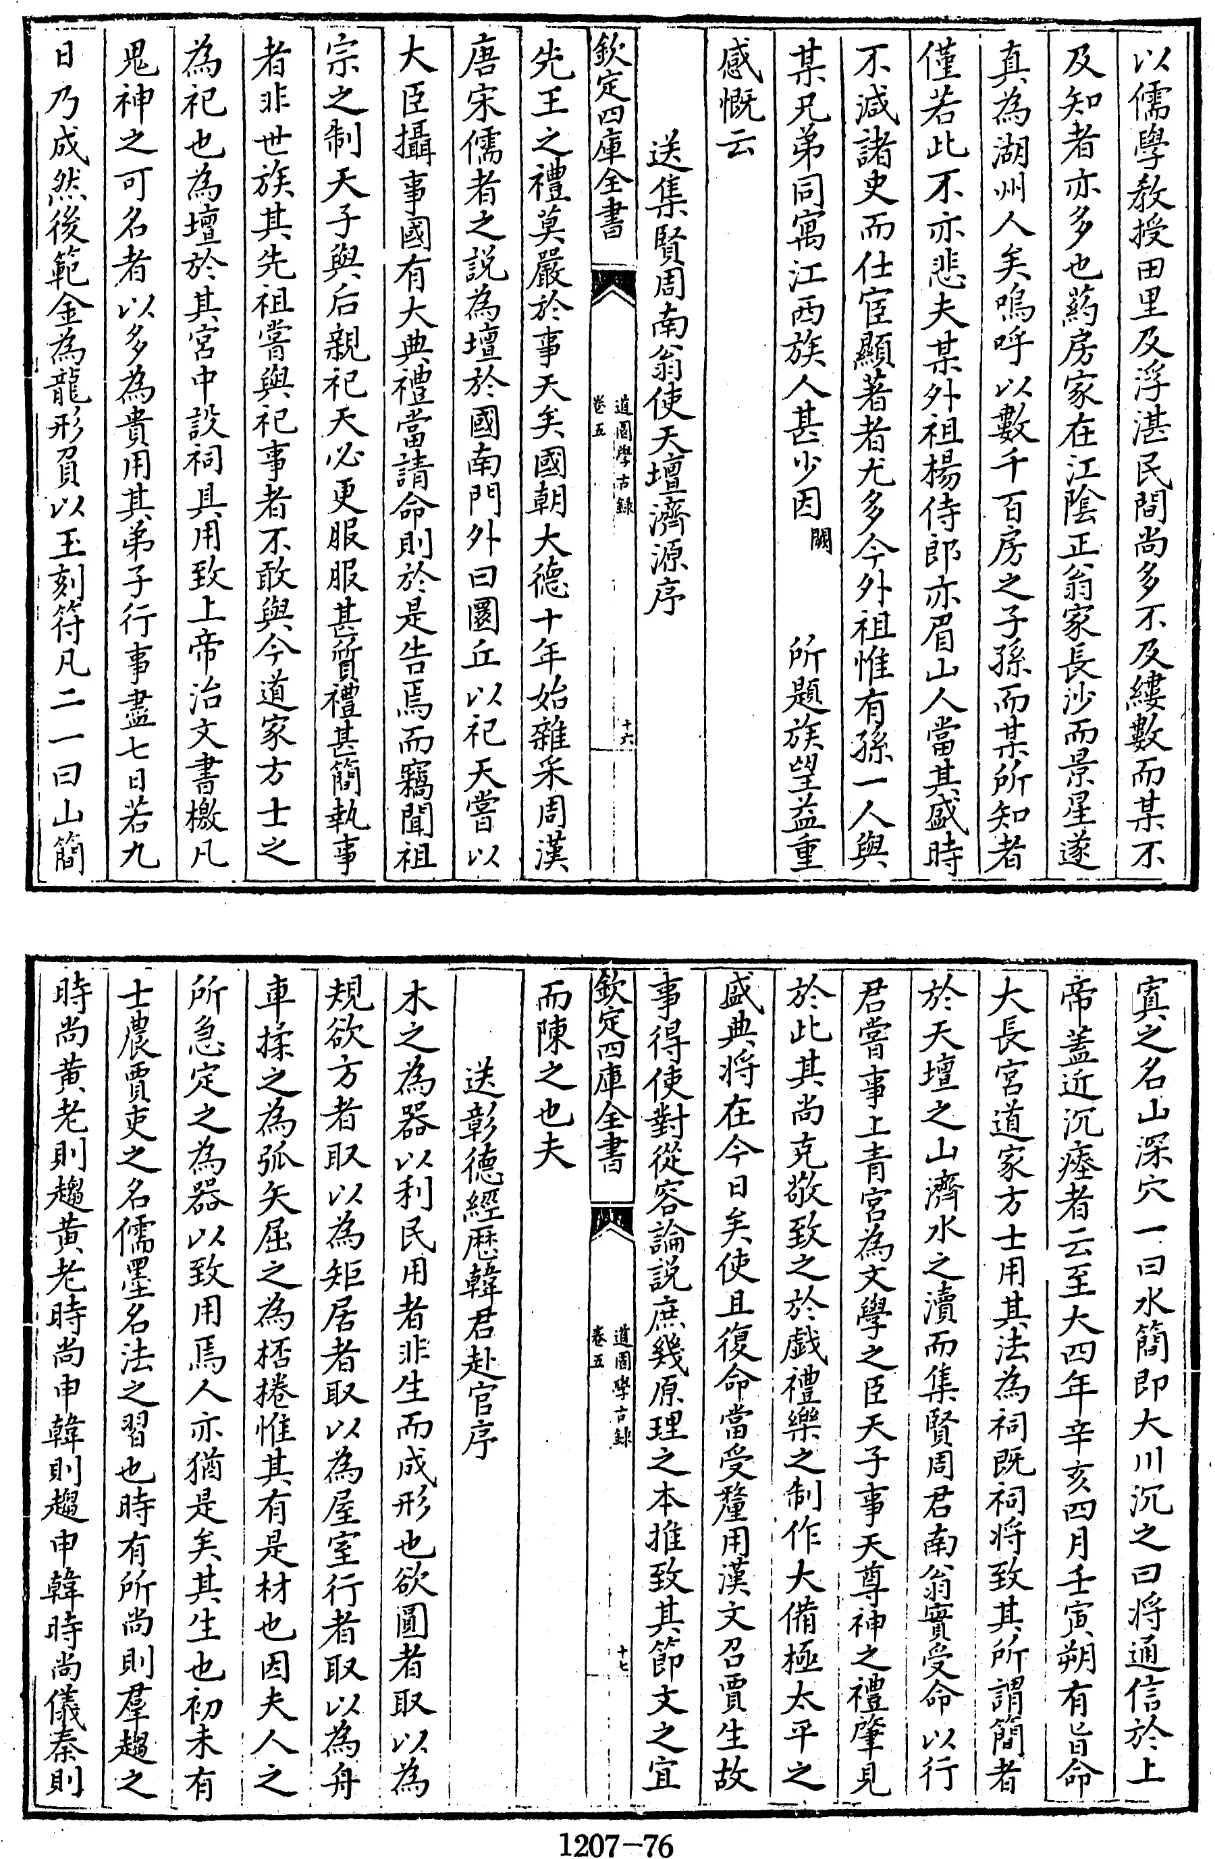 以儒學教授田里及浮湛民間尚多不及縷數而某不
及知者亦多也葯房家在江陰正翁家長沙而景星遂
真為湖州人矣嗚呼以數千百房之子孫而某所知者
僅若此不亦悲夫某外祖楊侍郎亦眉山人當其盛時
不減諸史而仕宦顯著者尤多今外祖惟有孫一人與
某兄弟同寓江西族人甚少因闕　所題族望益重
感慨云
送集賢周南翁使天壇濟源序
欽定四庫全書
道園學古錄
卷五
十六
先王之禮莫嚴於事天矣國朝大德十年始雜采周漢
唐宋儒者之説為壇於國南門外曰圜丘以祀天嘗以
大臣攝事國有大典禮當請命則於是告焉而竊聞祖
宗之制天子與后親祀天必更服服甚質禮甚簡執事
者非世族其先祖嘗與祀事者不敢與今道家方士之
為祀也為壇於其宮中設祠具用致上帝治文書檄凡
鬼神之可名者以多為貴用其弟子行事盡七日若九
日乃成然後範金為龍形負以玉刻符凡二一曰山簡
寘之名山深穴一曰水簡即大川沉之曰將通信於上
帝蓋近沉瘞者云至大四年辛亥四月壬寅朔有旨命
大長宮道家方士用其法為祠既祠將致其所謂簡者
於天壇之山濟水之瀆而集賢周君南翁實受命以行
君嘗事上青宮為文學之臣天子事天尊神之禮肇見
於此其尚克敬致之於戲禮樂之制作大備極太平之
盛典將在今日矣使且復命當受釐用漢文召賈生故
事得使對從容論説庶幾原理之本推致其節文之宜
欽定四庫全書
道園學古錄
卷五
十七
而陳之也夫
送彰德經歷韓君赴官序
木之為器以利民用者非生而成形也欲圓者取以為
規欲方者取以為矩居者取以為屋室行者取以為舟
車揉之為弧矢屈之為桮捲惟其有是材也因夫人之
所急定之為器以致用焉人亦猶是矣其生也初未有
士農賈吏之名儒墨名法之習也時有所尚則羣趨之
時尚黄老則趨黄老時尚申韓則趨申韓時尚儀秦則
1207-76